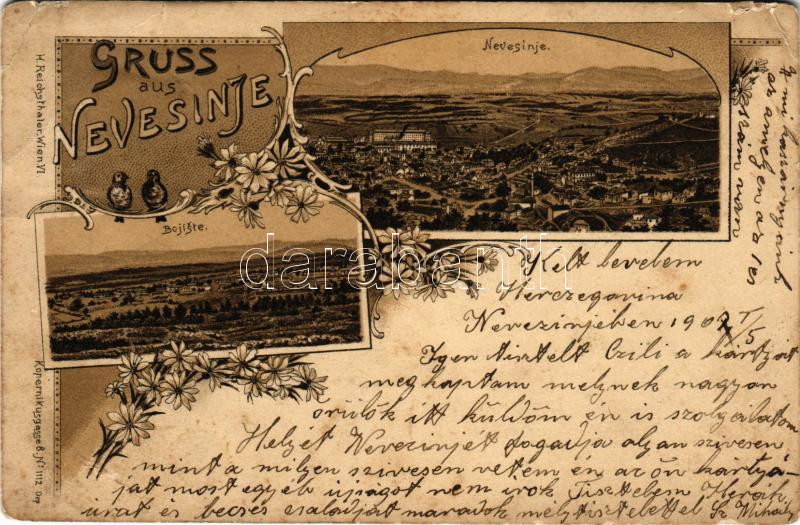 GRUSS
aus
NEVESINJE
Nevesinje.
Bojište.
H. Reichsthaler, Wien VI
Kopernikusgasse 8. No 1112 Dep
darabanth
Kelt levelem
Herczegovina
Nevezinjében 1902 V/5
Igen tisztelt Czili a kártyát
megkaptam melynek nagyon
örülök itt küldöm én is szolgálatom
Helyét Nevezinjét fogadja olyan szivesen
mint a milyen szivesen vetem én az ön kártyá-
ját most egyéb ujságot nem irok Tisztelem
urat és becses családját maradok mély tisztelettel Sz Mihály